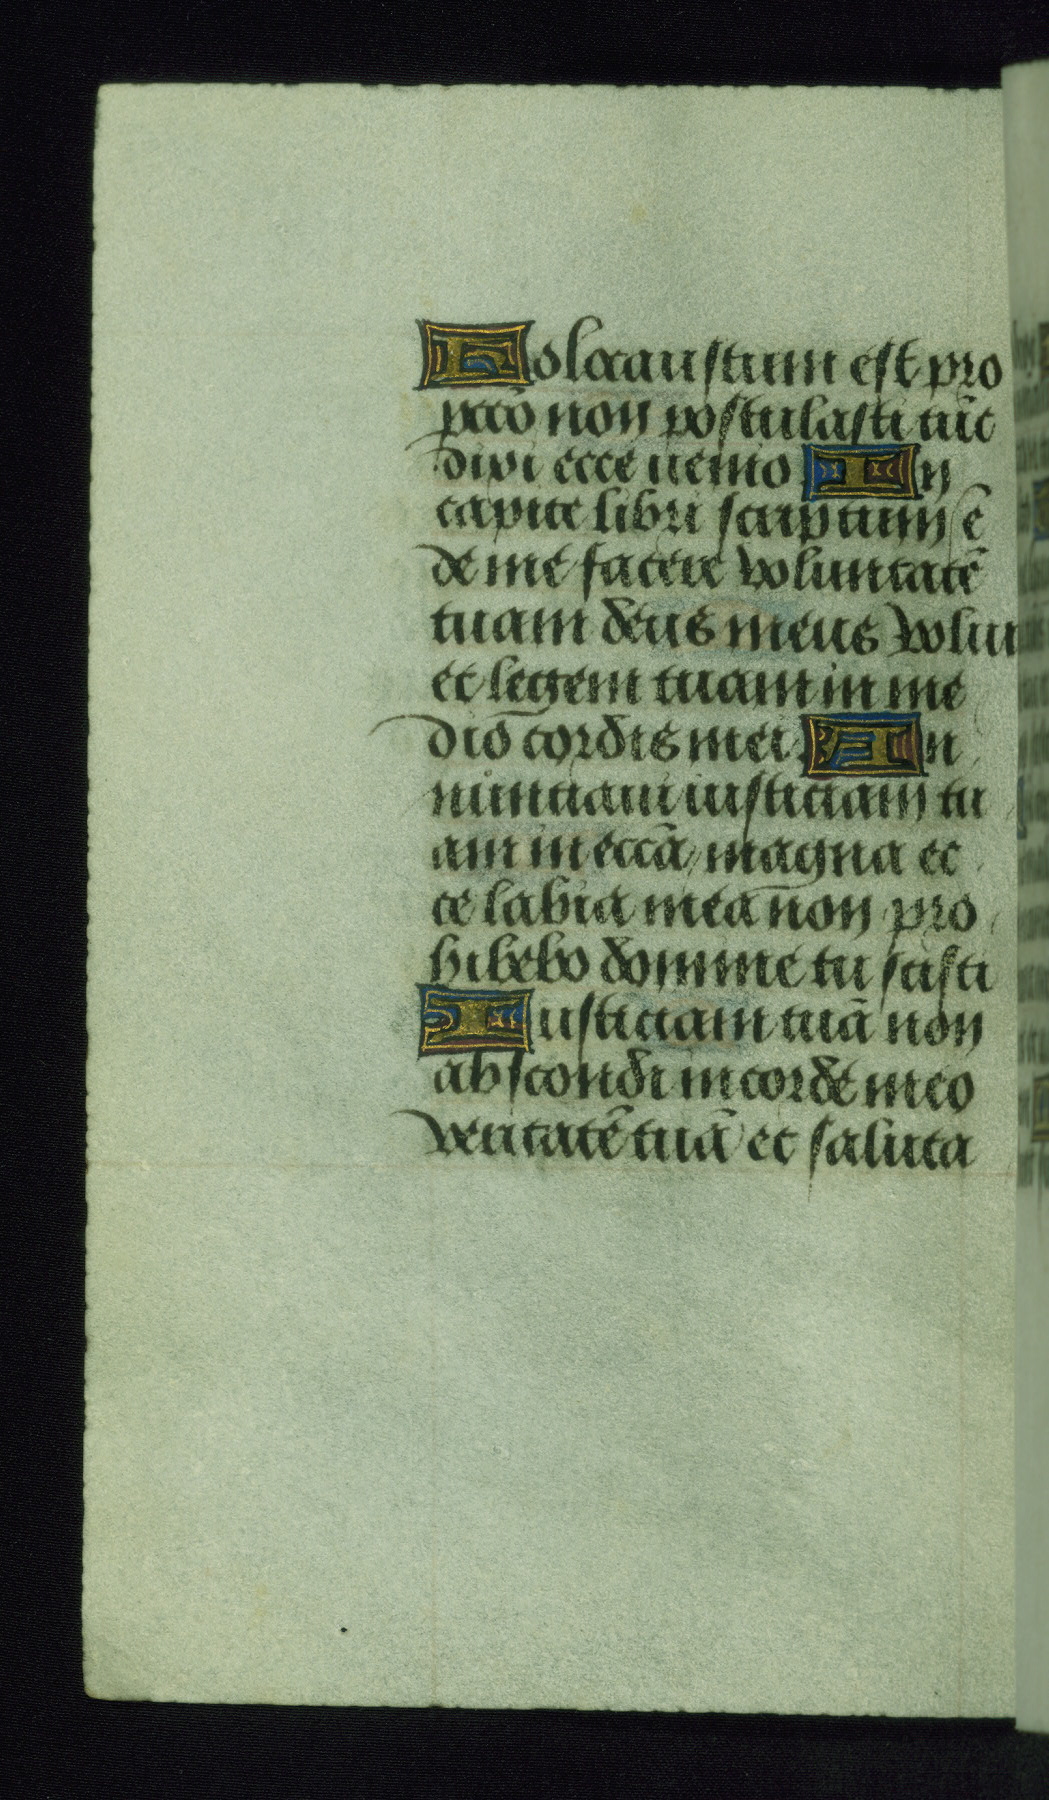 Holocaustum est pro
pctō non postulasti tūc
dixi ecce uenio In
capite libri scriptum ē
de me facere voluntatē
tuam deus meus volui
et legem tuam in me
dio cordis mei An
nuntiaui iusticiam tu
am in eccā magna ec
ce labia mea non pro
hibebo domine tu scisti
Iusticiam tuā non
abscondi in corde meo
veritatē tuā et saluta